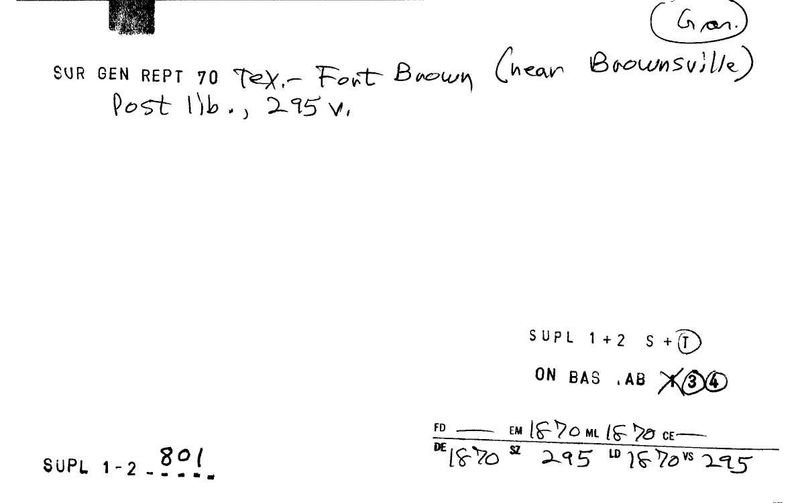 Gar.
SUR GEN REPT 70 Tex.- Fort Brown (near Brownsville)
Post lib., 295 v.
SUPL 1+2 S + T
ON BAS .AB 3 4
FD — EM 1870 ML 1870 CE —
DE 1870 SZ 295 LD 1870 VS 295
SUPL 1-2 801